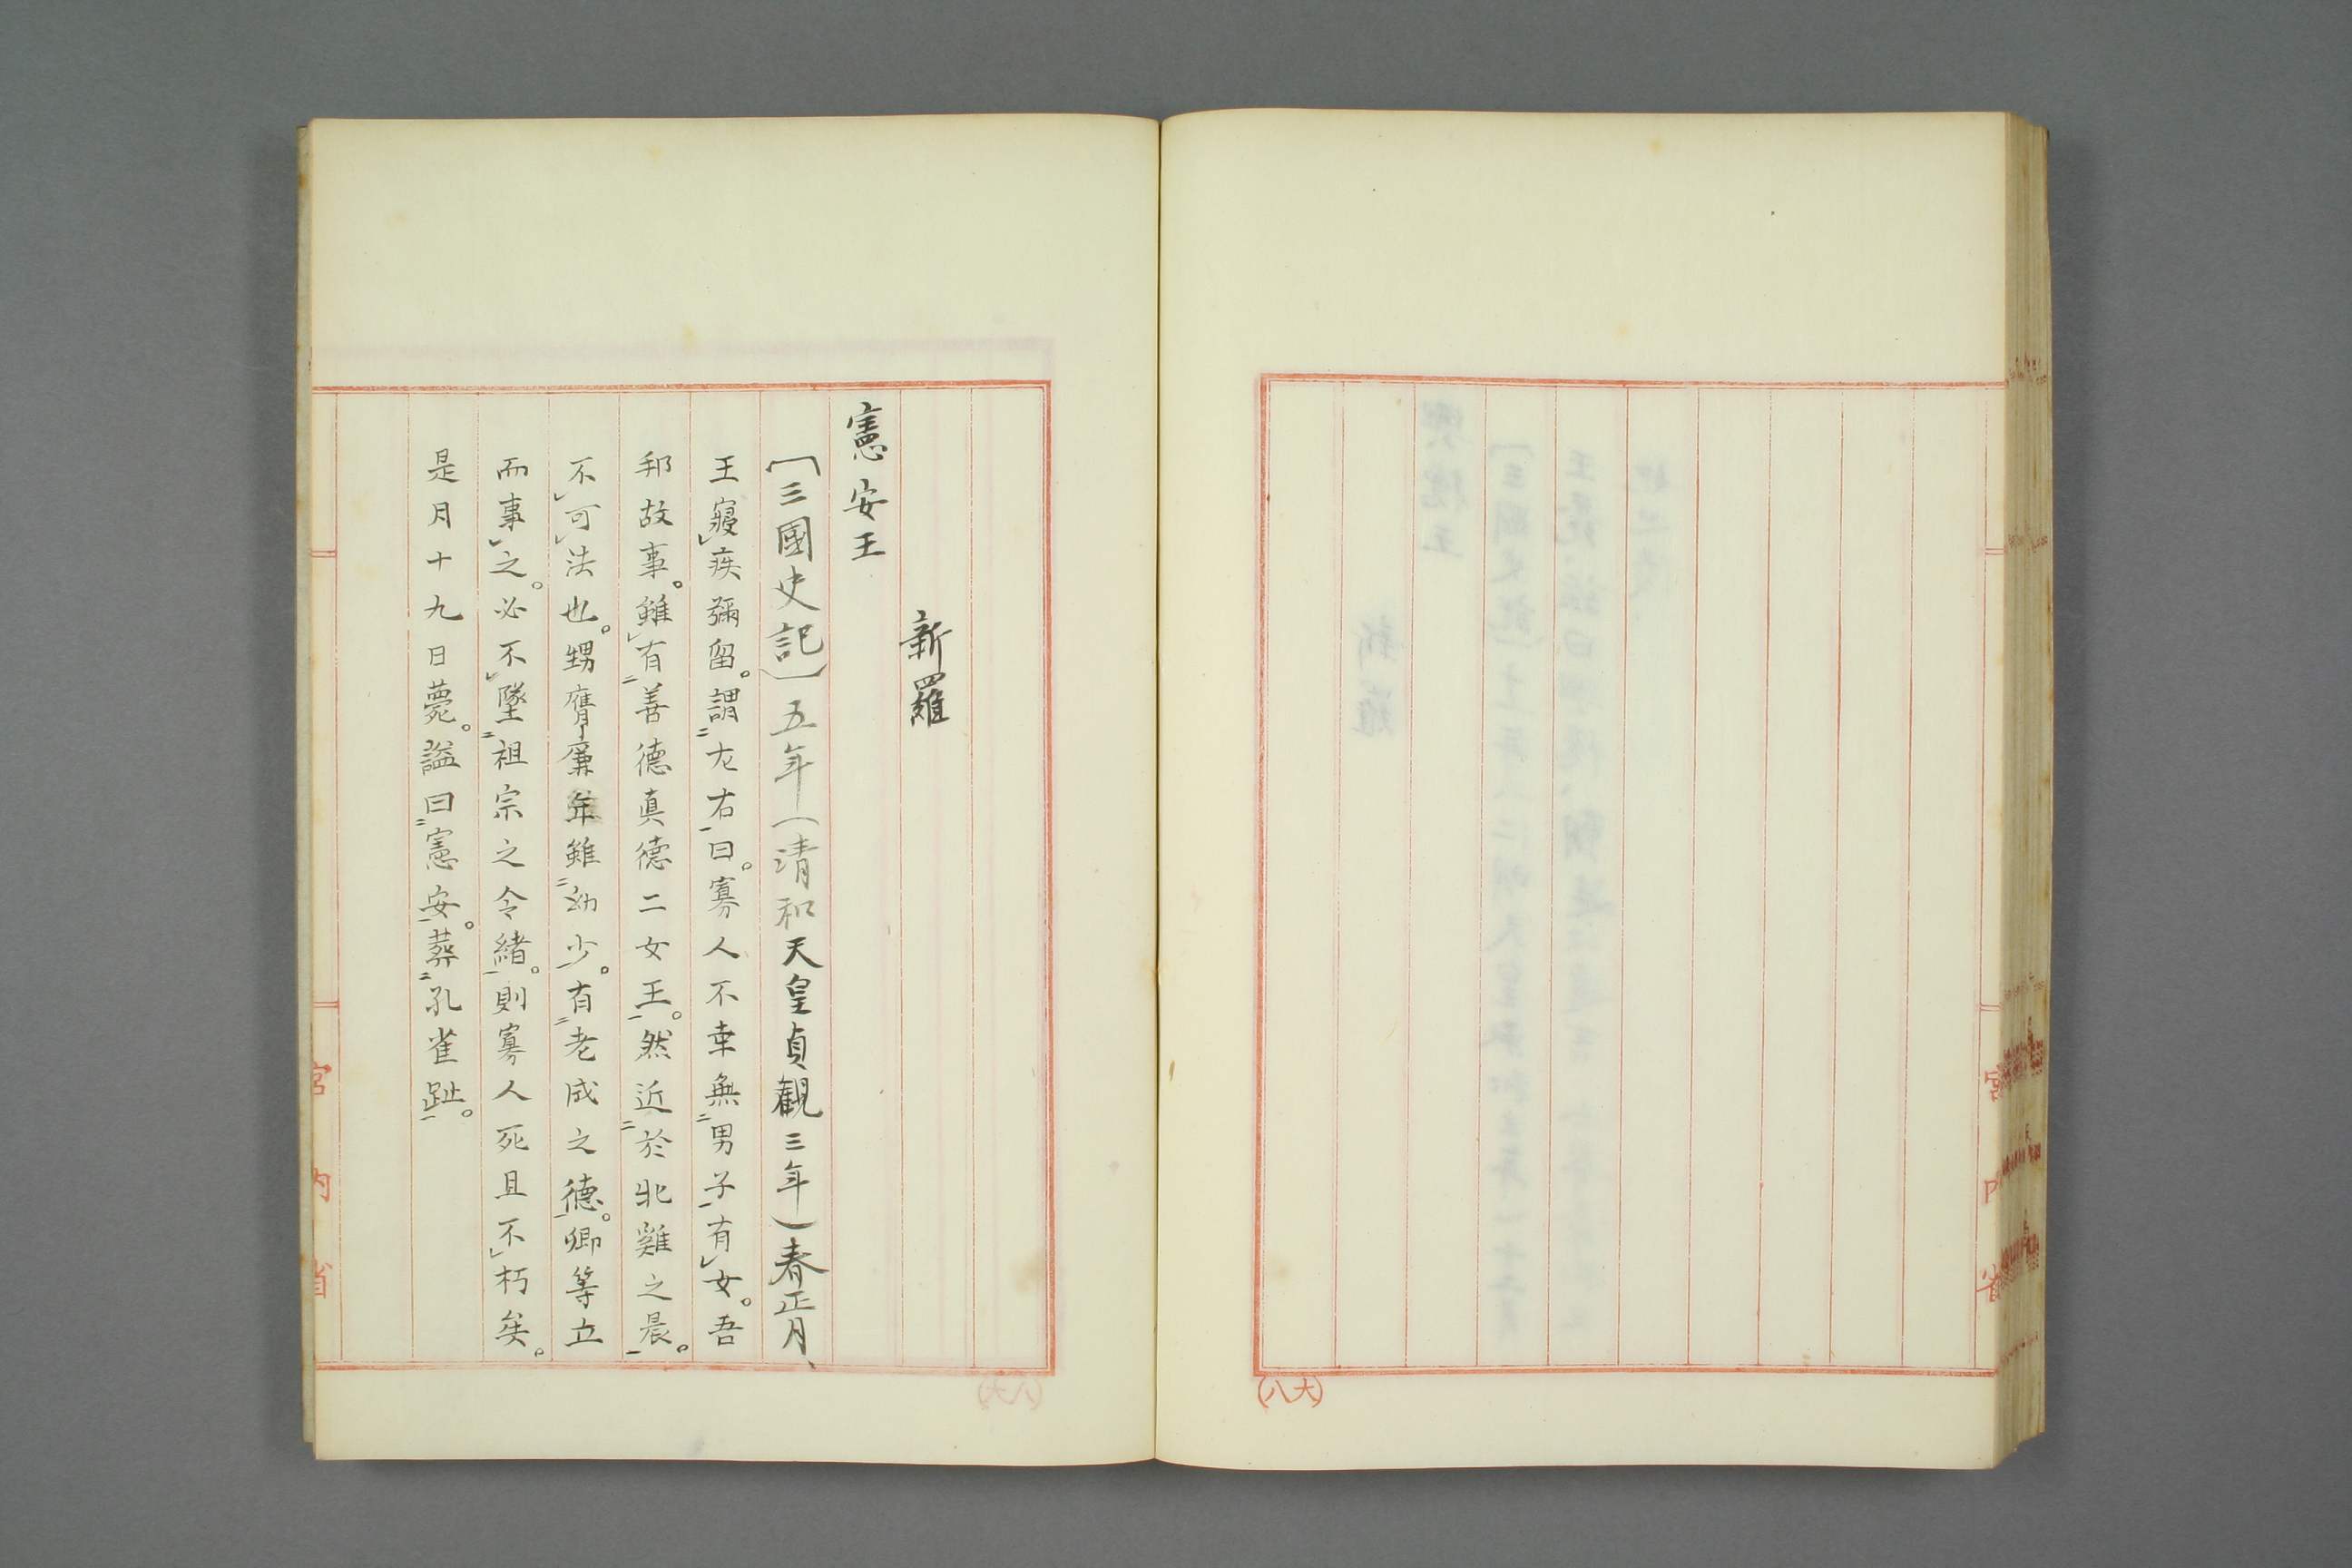 (大八)
宮内省
新羅
憲安王
〔三國史記〕五年(清和天皇貞觀三年)春正月、
王寢疾彌留。謂左右曰。寡人不幸無男子有女。吾
邦故事。雖有善德眞德二女王。然近於牝雞之晨。
不可法也。甥膺廉年雖幼少。有老成之德。卿等立
而事之。必不墜祖宗之令緒。則寡人死且不朽矣。
是月十九日薨。謚曰憲安。葬孔雀趾。
宮内省